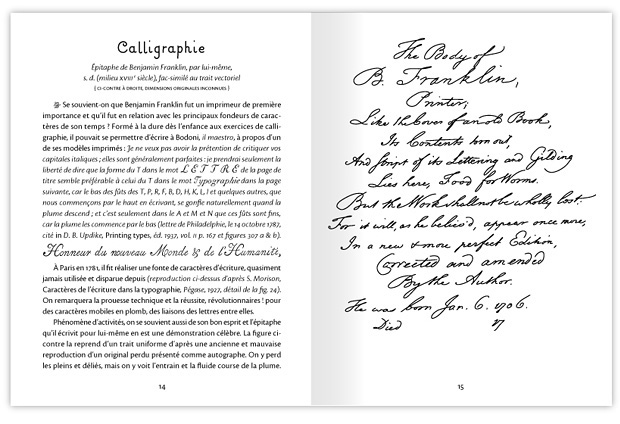 Calligraphie
Épitaphe de Benjamin Franklin, par lui-même,
s. d. (milieu XVIIIᵉ siècle), fac-similé au trait vectoriel
( CI-CONTRE À DROITE, DIMENSIONS ORIGINALES INCONNUES )
Se souvient-on que Benjamin Franklin fut un imprimeur de première
importance et qu'il fut en relation avec les principaux fondeurs de carac-
tères de son temps ? Formé à la dure dès l'enfance aux exercices de calli-
graphie, il pouvait se permettre d'écrire à Bodoni, il maestro, à propos d'un
de ses modèles imprimés : Je ne veux pas avoir la prétention de critiquer vos
capitales italiques ; elles sont généralement parfaites : je prendrai seulement la
liberté de dire que la forme du T dans le mot LETTRE de la page de
titre semble préférable à celui du T dans le mot Typographie dans la page
suivante, car le bas des fûts des T, P, R, F, B, D, H, K, L, I et quelques autres, que
nous commençons par le haut en écrivant, se gonfle naturellement quand la
plume descend ; et c'est seulement dans le A et M et N que ces fûts sont fins,
car la plume les commence par le bas (lettre de Philadelphie, le 14 octobre 1787,
cité in D. B. Updike, Printing types, éd. 1937, vol. II p. 167 et figures 307 a & b).
Honneur du nouveau Monde & de l'Humanité,
À Paris en 1781, il fit réaliser une fonte de caractères d'écriture, quasiment
jamais utilisée et disparue depuis (reproduction ci-dessus d'après S. Morison,
Caractères de l'écriture dans la typographie, Pégase, 1927, détail de la fig. 24).
On remarquera la prouesse technique et la réussite, révolutionnaires ! pour
des caractères mobiles en plomb, des liaisons des lettres entre elles.
Phénomène d'activités, on se souvient aussi de son bon esprit et l'épitaphe
qu'il écrivit pour lui-même en est une démonstration célèbre. La figure ci-
contre la reprend d'un trait uniforme d'après une ancienne et mauvaise
reproduction d'un original perdu présenté comme autographe. On y perd
les pleins et déliés, mais on y voit l'entrain et la fluide course de la plume.
14
The Body of
B. Franklin,
Printer;
Like the Cover of an old Book,
Its Contents torn out,
And stript of its Lettering and Gilding
Lies here, Food for Worms.
But the Work shall not be wholly lost:
For it will, as he believ'd, appear once more,
In a new & more perfect Edition,
Corrected and amended
By the Author.
He was born Jan. 6. 1706.
Died 17
15